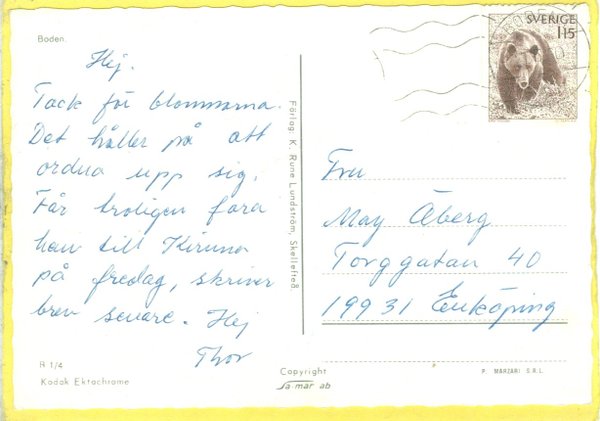 Boden
Hej.
Tack för blommorna.
Det håller på att
ordna upp sig.
Får troligen fara
hem till Kiruna
på fredag, skriver
brev senare. Hej
Thor
R 1/4
Kodak Ektachrome
Förlag: K. Rune Lundström, Skellefteå
Copyright
sa-mär ab
BODEN
SVERIGE
115
Fru
May Åberg
Torggatan 40
19931 Enköping
P. MARZARI S.R.L.